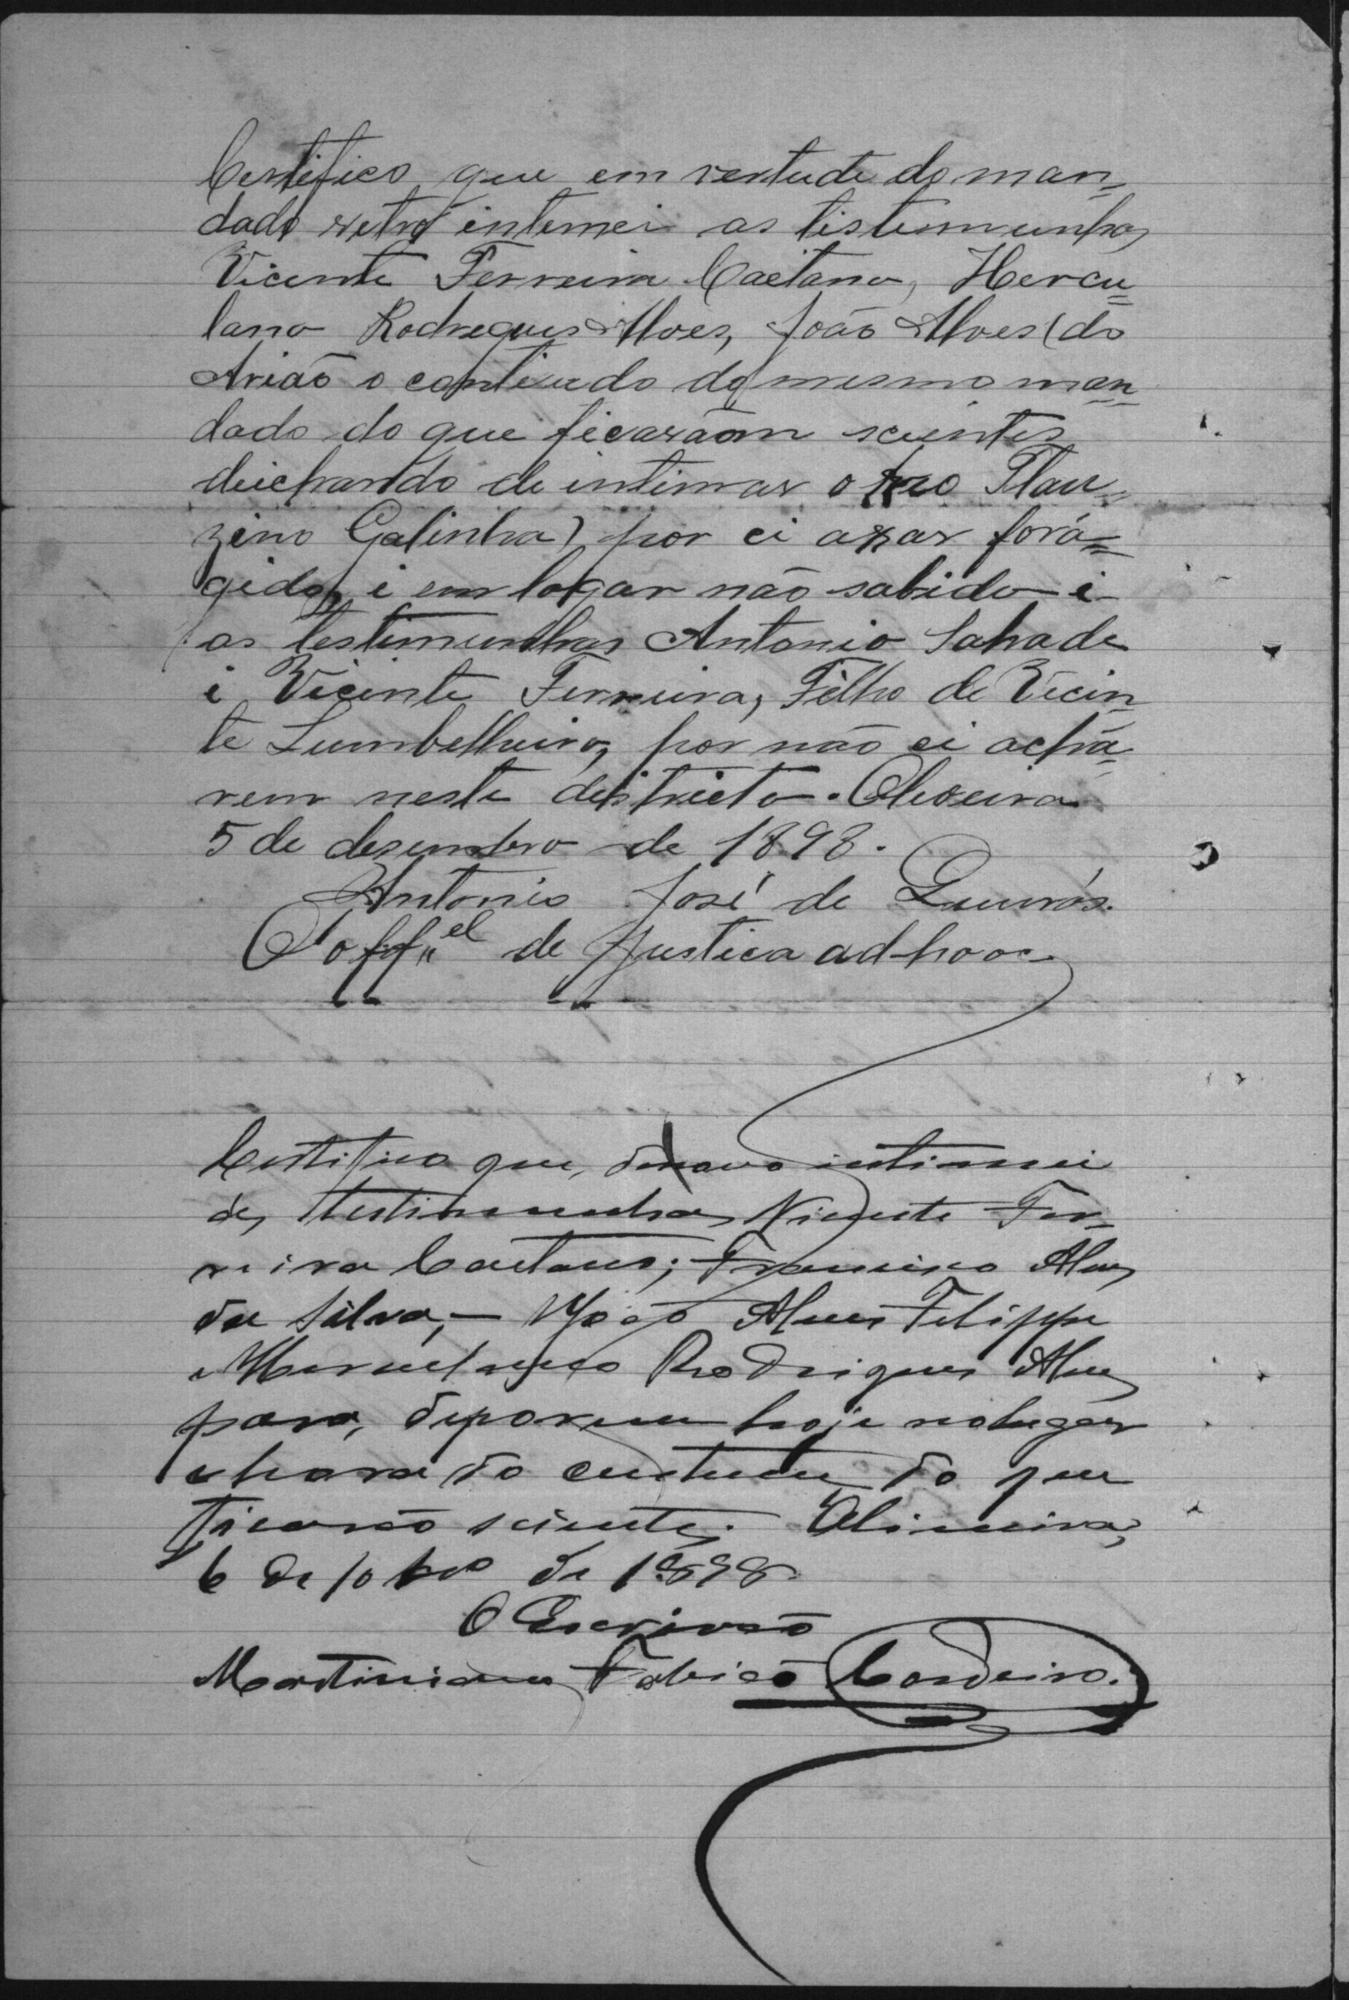 Certifico que em vertude do man-
dado retro intemei as tistemunhas
Vicente Ferreira Caetano, Hercu-
lano Rodregues Alves, João Alves (do
Arião o contiudo do mesmo man-
dado do que ficarãom scientes
deichando de intimar o reo Flau-
zino Galinha) por ci axar forá-
gido, i em logar não sabido i
as testimunhas Antonio Sahade
i Vicente Ferreira, Filho de Vicin-
te Lumbelheiro, por não ci achá-
rem neste destricto. Oliveira
5 de desembro de 1898.
Antonio José de
O off.el de Justica ad-hooc
Certifico que, de novo intimei
as testimunhas Vicente Fer-
reira Caetano; Francisco Alves
da Silva, - João Alves Felippe
e Herculano Rodrigues Alves
para, deporem hoje no lugar
e hora do custume do que
ficarão sciente. Oliveira,
6 de 10bro de 1898.
O Escrivão
Martiniano Fabião Cordeiro.